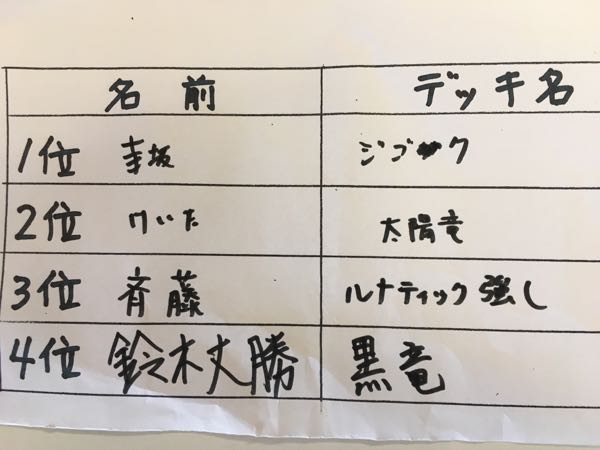 名前 デッキ名
1位 寺坂 ジゴク
2位 けいた 太陽竜
3位 斉藤 ルナティック強し
4位 鈴木丈勝 黒竜